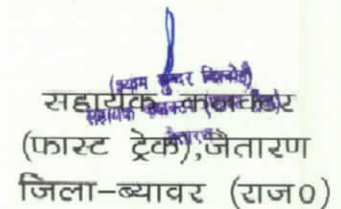 (श्याम सुन्दर बिश्नोई)
सहायक कलक्टर
सहायक कलक्टर
(फास्ट ट्रेक),जैतारण
जिला-ब्यावर (राज0)